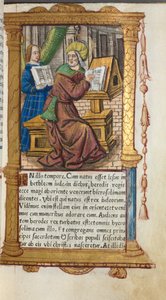 IN illo tempore, Cum natus esset Iesus in
bethleem iudee in diebus herodis regis
ecce magi ab oriente venerunt hierosolimam
dicentes, Vbi qui natus est rex iudeorum
Vidimus enim stellam eius in oriente et veni
mus cum muneribus adorare eum. Audiens
autem herodes rex turbatus est et omnis hie
rosolima cum illo. Et congregans omnes prin
cipes sacerdotum et scribas populi sciscitaba
tur ab eis vbi christus nasceretur. at illi